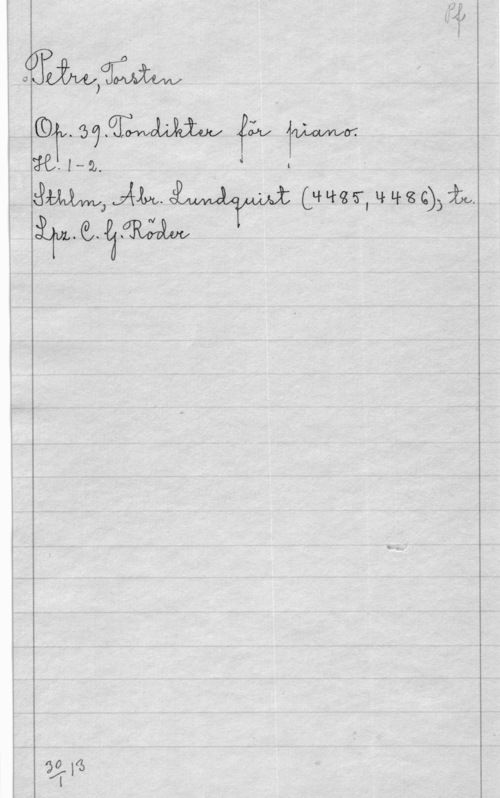 Pf
Petre, Torsten
Op. 39. Tondikter för piano.
H. 1-2.
Sthlm, Abr. Lundquist (4485, 4486), tr.
Lpz. C. G. Röder
30/1 13